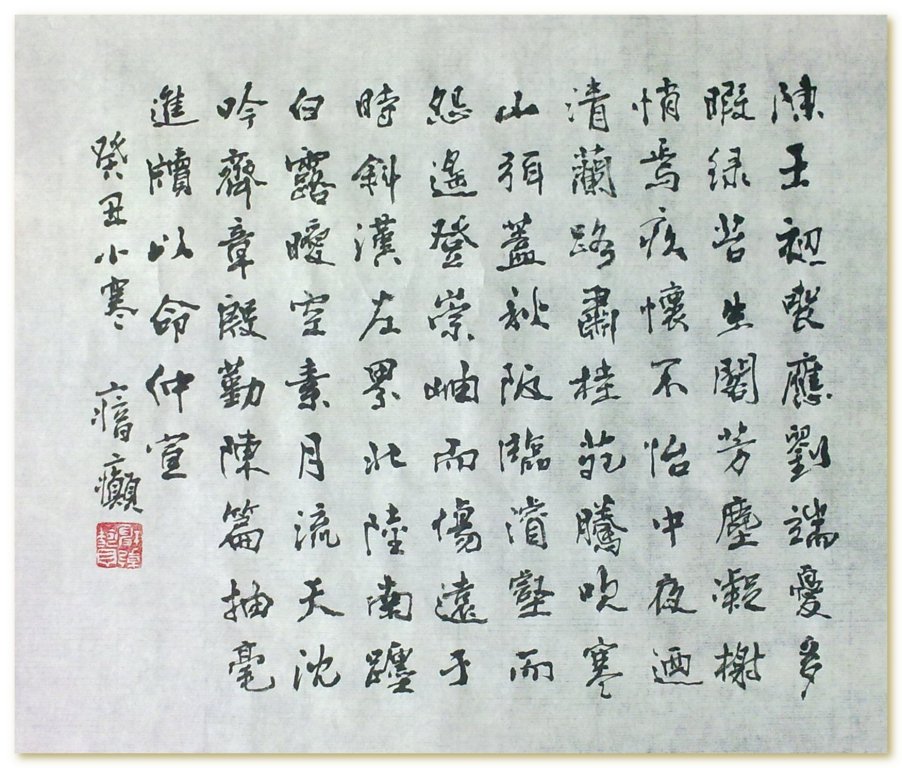 陳王初喪應劉端憂多
暇綠苔生閣芳塵凝榭
悄焉疚懷不怡中夜迺
清蘭路肅桂苑騰吹寒
山弭蓋秋阪臨濬壑而
怨遙登崇岫而傷遠于
時斜漢左界北陸南躔
白露曖空素月流天沈
吟齊章殷勤陳篇抽毫
進牘以命仲宣
癸丑小寒 瘖癲